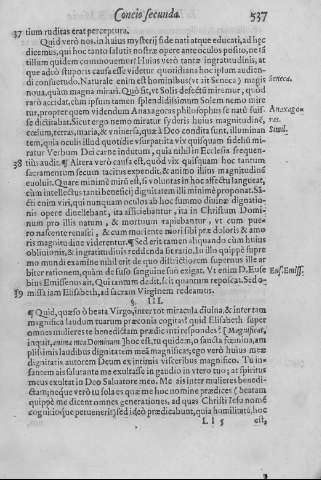 Concio secunda. 537
37 tium ruditas erat perceptura.
Quid verò nos, in huius mysterij fide nati atque educati, ad hęc
dicemus, qui hoc tanto salutis nostræ opere ante oculos posito,
tillum quidem commouemur? Huius verò tantæ ingratitudinis, at
que adeò stuporis causa esse videtur quotidiana hoc ipsum audien-
di consuetudo. Naturale enim est hominibus (vt ait Seneca) magis Seneca.
noua, quàm magna mirari. Quò fit, vt Solis defectũ miremur, quòd
rarò accidat, cùm ipsum tamen splendidissimum Solem nemo mire
tur, propter quem videndum Anaxagoras philosophus se natũ fuis- Anaxago-
se dictitabat. Sicut ergo nemo miratur syderis huius magnitudinẽ, ras.
cœlum, terras, maria, & vniuersa, quæ à Deo condita sunt, illuminan Simil.
tem, quia oculis illud quotidie vsurpatita vix quisquam fideliũ mi-
ratur Verbum Dei carne indutum, quia nihil in Ecclesia frequen-
38 tiùs audit. ¶ Altera verò causa est, quòd vix quisquam hoc tantum
sacramentum secum tacitus expendit, & animo illius magnitudinẽ
euoluit. Quare minimè mirũ est, si voluntas in hoc affectu langueat,
cùm intellectus tanti beneficij dignitatem illi minimè proponat. Sã-
cti enim viri, qui nunquam oculos ab hoc summo diuinæ dignatio-
nis opere diuellebant, ita afficiebantur, ita in Christum Domi-
num pro illis natum, & mortuum rapiebantur, vt cum pue-
ro nascente renasci, & cum moriente mori sibi præ doloris & amo
ris magnitudine viderentur. ¶ Sed erit tamen aliquando cùm huius
obliuionis, & ingratitudinis reddenda sit ratio. In illo quippè supre
mo mundi examine nihil erit de quo districtiorem supremus ille ar
biter rationem, quàm de fuso sanguine suo exigat. Vt enim D. Euse Eus. Emiss.
bius Emissenus ait, Qui tantum dedit, scit quantum reposcat. Sed o-
39 missa iam Elisabeth, ad sacram Virginem redeamus.
§. III.
¶ Quid, quæso ò beata Virgo, inter tot miracula diuina, & inter tam
magnifica laudum tuarum præconia cogitas? quid Elisabeth super
omnes mulieres te benedictam prædicanti respondes? [Magnificat,
inquit, anima mea Dominum] hoc est, tu quidem, o sancta fœmina, am
plissimis laudibus dignitatem meã magnificas; ego verò huius meæ
dignitatis autorem Deum ex intimis visceribus magnifico. Tu in-
fantem ais salutante me exultasse in gaudio in vtero tuo; at spiritus
meus exultat in Deo Salutatore meo. Me ais inter mulieres benedi-
ctam; neque verò tu sola es quæ me hoc nomine prædices (beatam
quippè me dicent omnes generationes, ad quas Christi Iesu nomẽ
cognitioque peruenerit) sed ideò prædicabunt, quia humilitatẽ, hoc
L l 5 est,